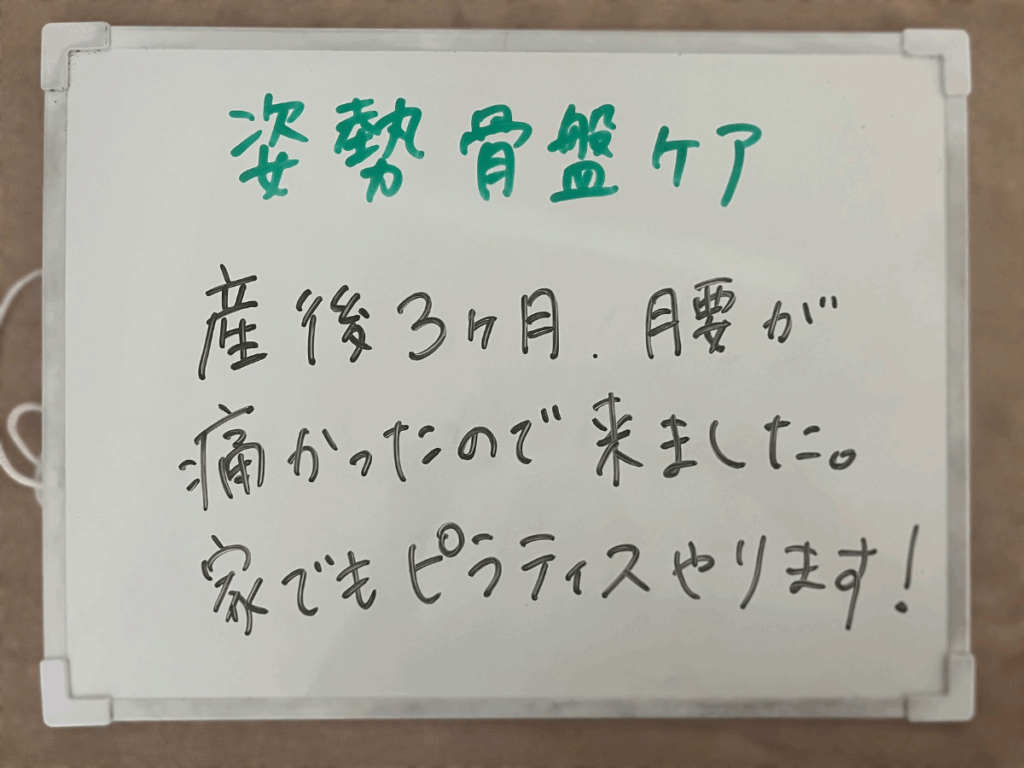 姿勢骨盤ケア
産後3ヶ月.腰が
痛かったので来ました。
家でもピラティスやります!